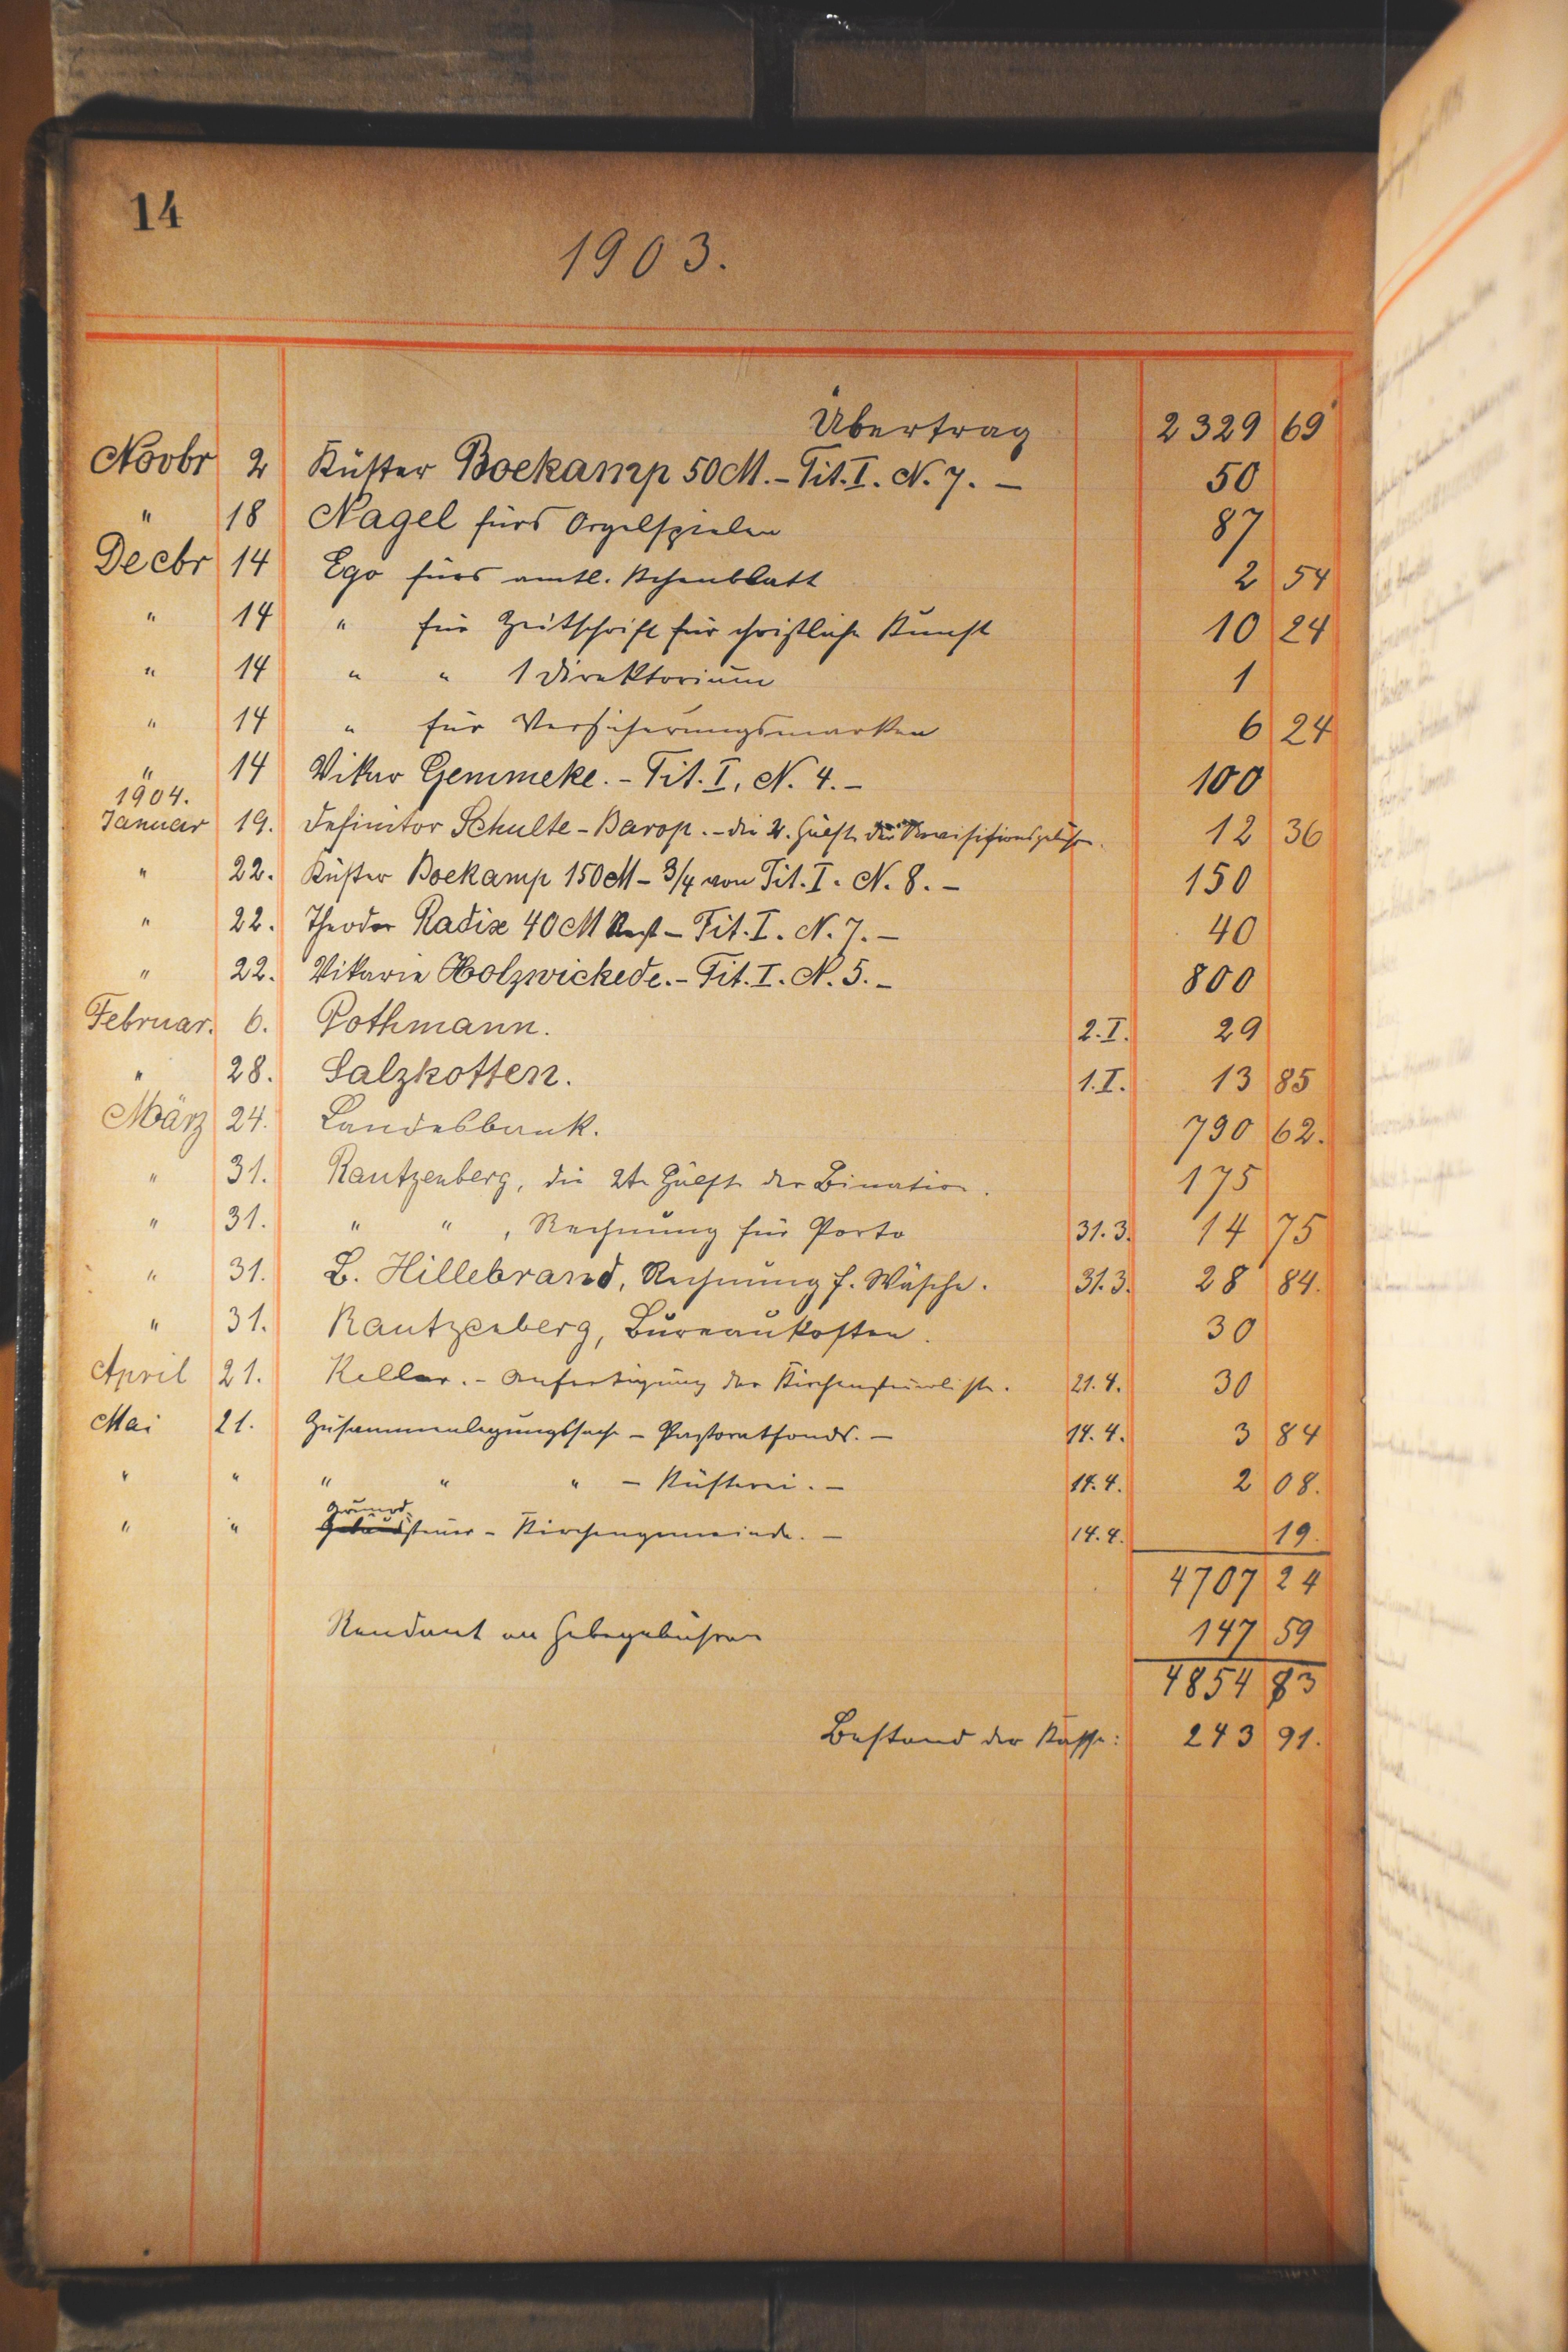 14
1903.
Übertrag 2329 69
Novbr 2 Küster Boekamp 50 M. - Tit. I. N. 7. - 50
" 18 Nagel fürs Orgelspielen 87
Decbr 14 Ego fürs amtl. Kchenblatt 2 54
" 14 " für Zeitschrift für christliche Kunst 10 24
" 14 " " 1 Direktorium 1
" 14 " für Versicherungsmarken 6 24
" 14 Vikar Gemmeke. - Tit. I, N. 4. - 100
1904.
Januar 19. Definitor Schulte-Barop. - die 2. Hälfte der 12 36
" 22. Küster Boekamp 150 M - 3/4 von Tit. I. N. 8. - 150
" 22. Theodor Radix 40 M Rest - Tit. I. N. 7. - 40
" 22. Vikarie Holzwickede. - Tit. I. N. 5. - 800
Februar. 6. Pothmann. 2. I. 29
" 28. Salzkotten. 1. I. 13 85
März 24. Landesbank. 790 62.
" 31. Rautzenberg, die 2te Hälfte der Bination. 175
" 31. " " , Rechnung für Porto 31. 3. 14 75
" 31. L. Hillebrand, Rechnung f. Wäsche. 31. 3. 28 84.
" 31. Rautzenberg, Bureaukosten. 30
April 21. Keller. - Anfertigung der Kirchensteuerliste. 21. 4. 30
Mai 21. Zusammenlegungssache - Pastoratfonds. - 14. 4. 3 84
" " " " " - Küsterei. - 14. 4. 2 08.
Grund
" " Gebäudsteuer - Kirchengemeinde. - 14. 4. 19.
4707 24
Rendant an Hebegebühren 147 59
4854 83
Bestand der Kasse: 243 91.